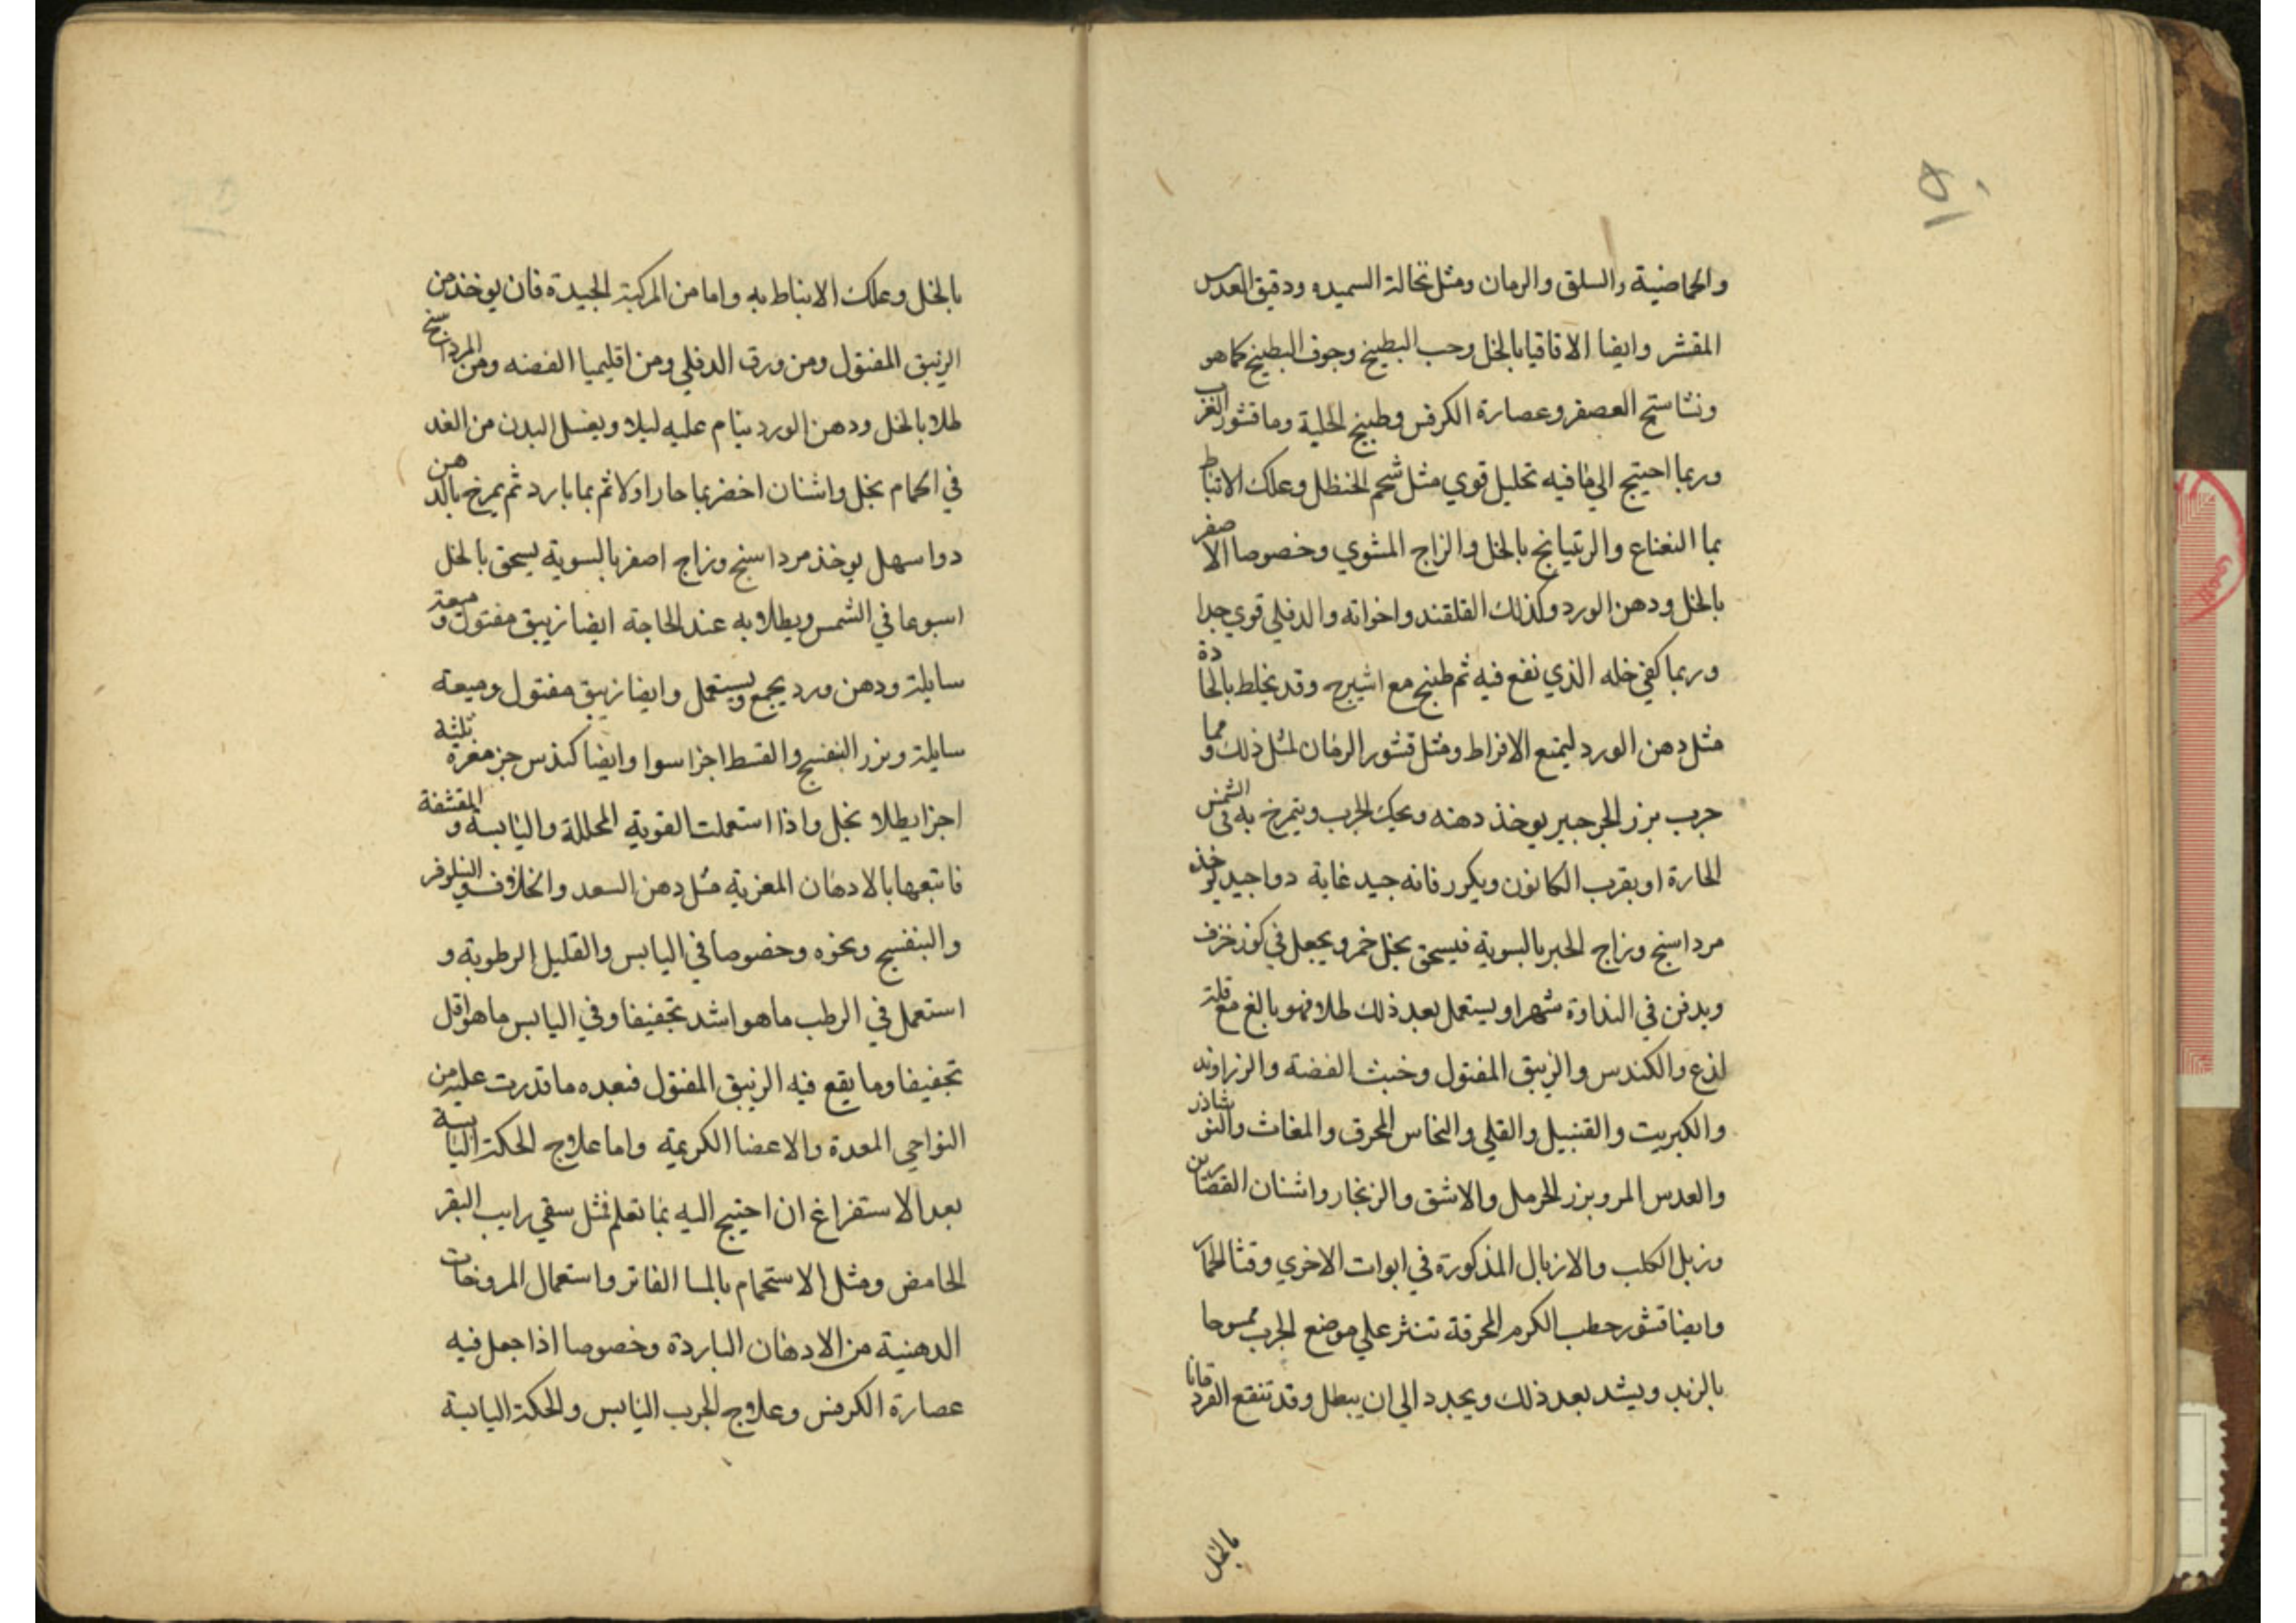 والحماضية والسلق والرمان ومثل نخالة السميد ودقيق العدس
المقشر وايضا الاقاقيا بالخل وحب البطيخ وجوف البطيخ كما هو
ونشاستج العصفر وعصارة الكرفس وطبيخ الحلبة وما قشور الغرب
وربما احتيج الي ما فيه تحليل قوي مثل شحم الحنظل وعلك الانباط
بما النعناع والريتيانج بالخل والزاج المشوي وخصوصا الاصفر
بالخل ودهن الورد وكذلك القلقند واخواته والدفلي قوي جدا
وربما كفي خله الذي نقع فيه ثم طبخ مع اشيرج وقد يخلط بالحادة
مثل دهن الورد ليمنع الافراط ومثل قشور الرمان لمثل ذلك ومما
جرب بزر الجرجير يوخذ دهنه ويحك الجرب ويتمرخ به في الشمس
الحارة او بقرب الكانون ويكرر فانه جيد غاية دوا جيد يوخذ
مرداسنج وزاج الحبر بالسوية فيسحق بخل خمر ويجعل في كوز خزف
ويدفن في النداوة شهرا ويستعمل بعد ذلك طلا فهو بالغ مع قلة
لذع والكندس والزيبق المقتول وخبث الفضة والزراوند
والكبريت والقنبيل والقلي والنحاس المحرق والمغاث والنوشاذر
والعدس المر وبزر الحرمل والاشق والزنجار واشنان القصارين
وزبل الكلب والازبال المذكورة في ابوات الاخري وقثا الحمار
وايضا قشور حطب الكرم المحرقة تنثر علي موضع الجرب ممسوحا
بالزبد ويشد بعد ذلك ويجدد الي ان يبطل وقد تنقع القردمانا
بالخل
بالخل وعلك الانباط به واما من المركبة الجيدة فان يوخذ من
الزيبق المقتول ومن ورق الدفلي ومن اقليميا الفضه ومن المرداسنج
طلا بالخل ودهن الورد ينام عليه ليلا ويغسل البدن من الغد
في الحمام بخل واشنان اخضر بما حار اولا ثم بما بارد ثم يمرخ بالدهن
دوا سهل يوخذ مرداسنج وزاج اصفر بالسوية يسحق بالخل
اسبوعا في الشمس ويطلا به عند الحاجة ايضا زيبق مقتول وميعة
سايلة ودهن ورد يجمع ويستعمل وايضا زيبق مقتول وميعة
سايلة وبزر البنفسج والقسط اجزا سوا وايضا كندس جز مغرة ثلثة
اجزا يطلا بخل واذا استعملت القوية المحللة واليابسة والمقشفة
فاتبعها بالادهان المغرية مثل دهن السعد والخلاف والنيلوفر
والبنفسج ونحوه وخصوصا في اليابس والقليل الرطوبة و
استعمل في الرطب ما هو اشد تجفيفا وفي اليابس ما هو اقل
تجفيفا وما يقع فيه الزيبق المقتول فبعده ما قدرت عليه من
النواحي المعدة والاعضا الكريمة واما علاج الحكة اليابسة
بعد الاستفراغ ان احتيج اليه بما تعلم فمثل سقي رايب البقر
الحامض ومثل الاستحمام بالما الفاتر واستعمال المروخات
الدهنية من الادهان الباردة وخصوصا اذا جعل فيه
عصارة الكرفس وعلاج الجرب اليابس والحكة اليابسة